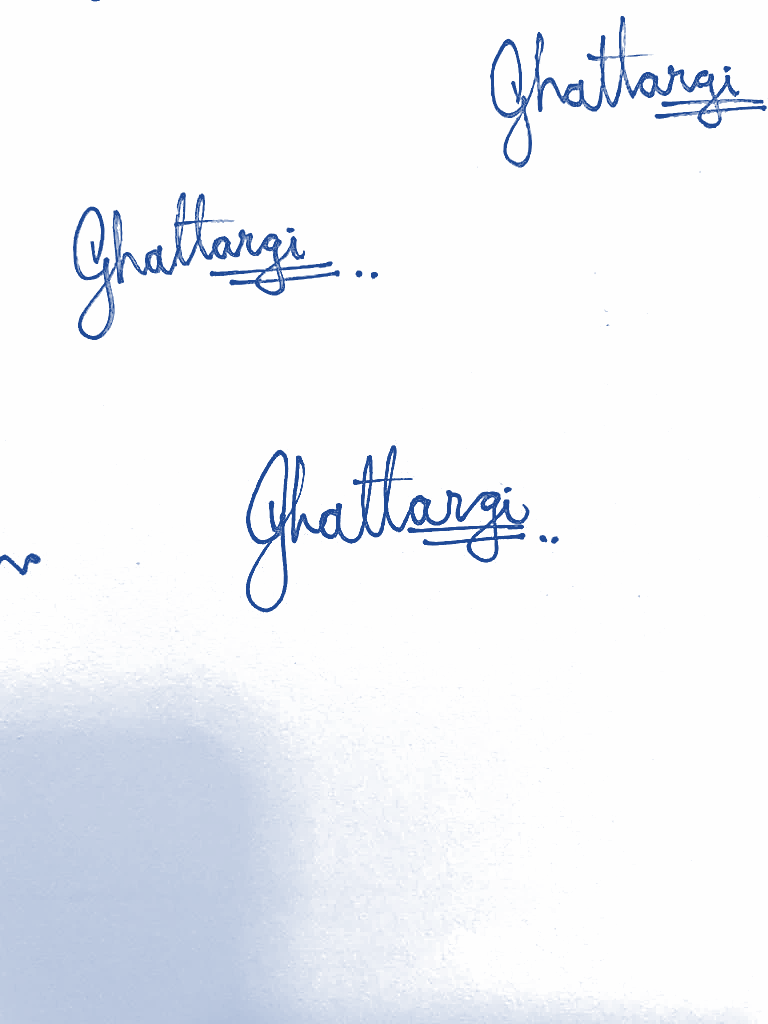 Ghattargi
Ghattargi ..
Ghattargi ..